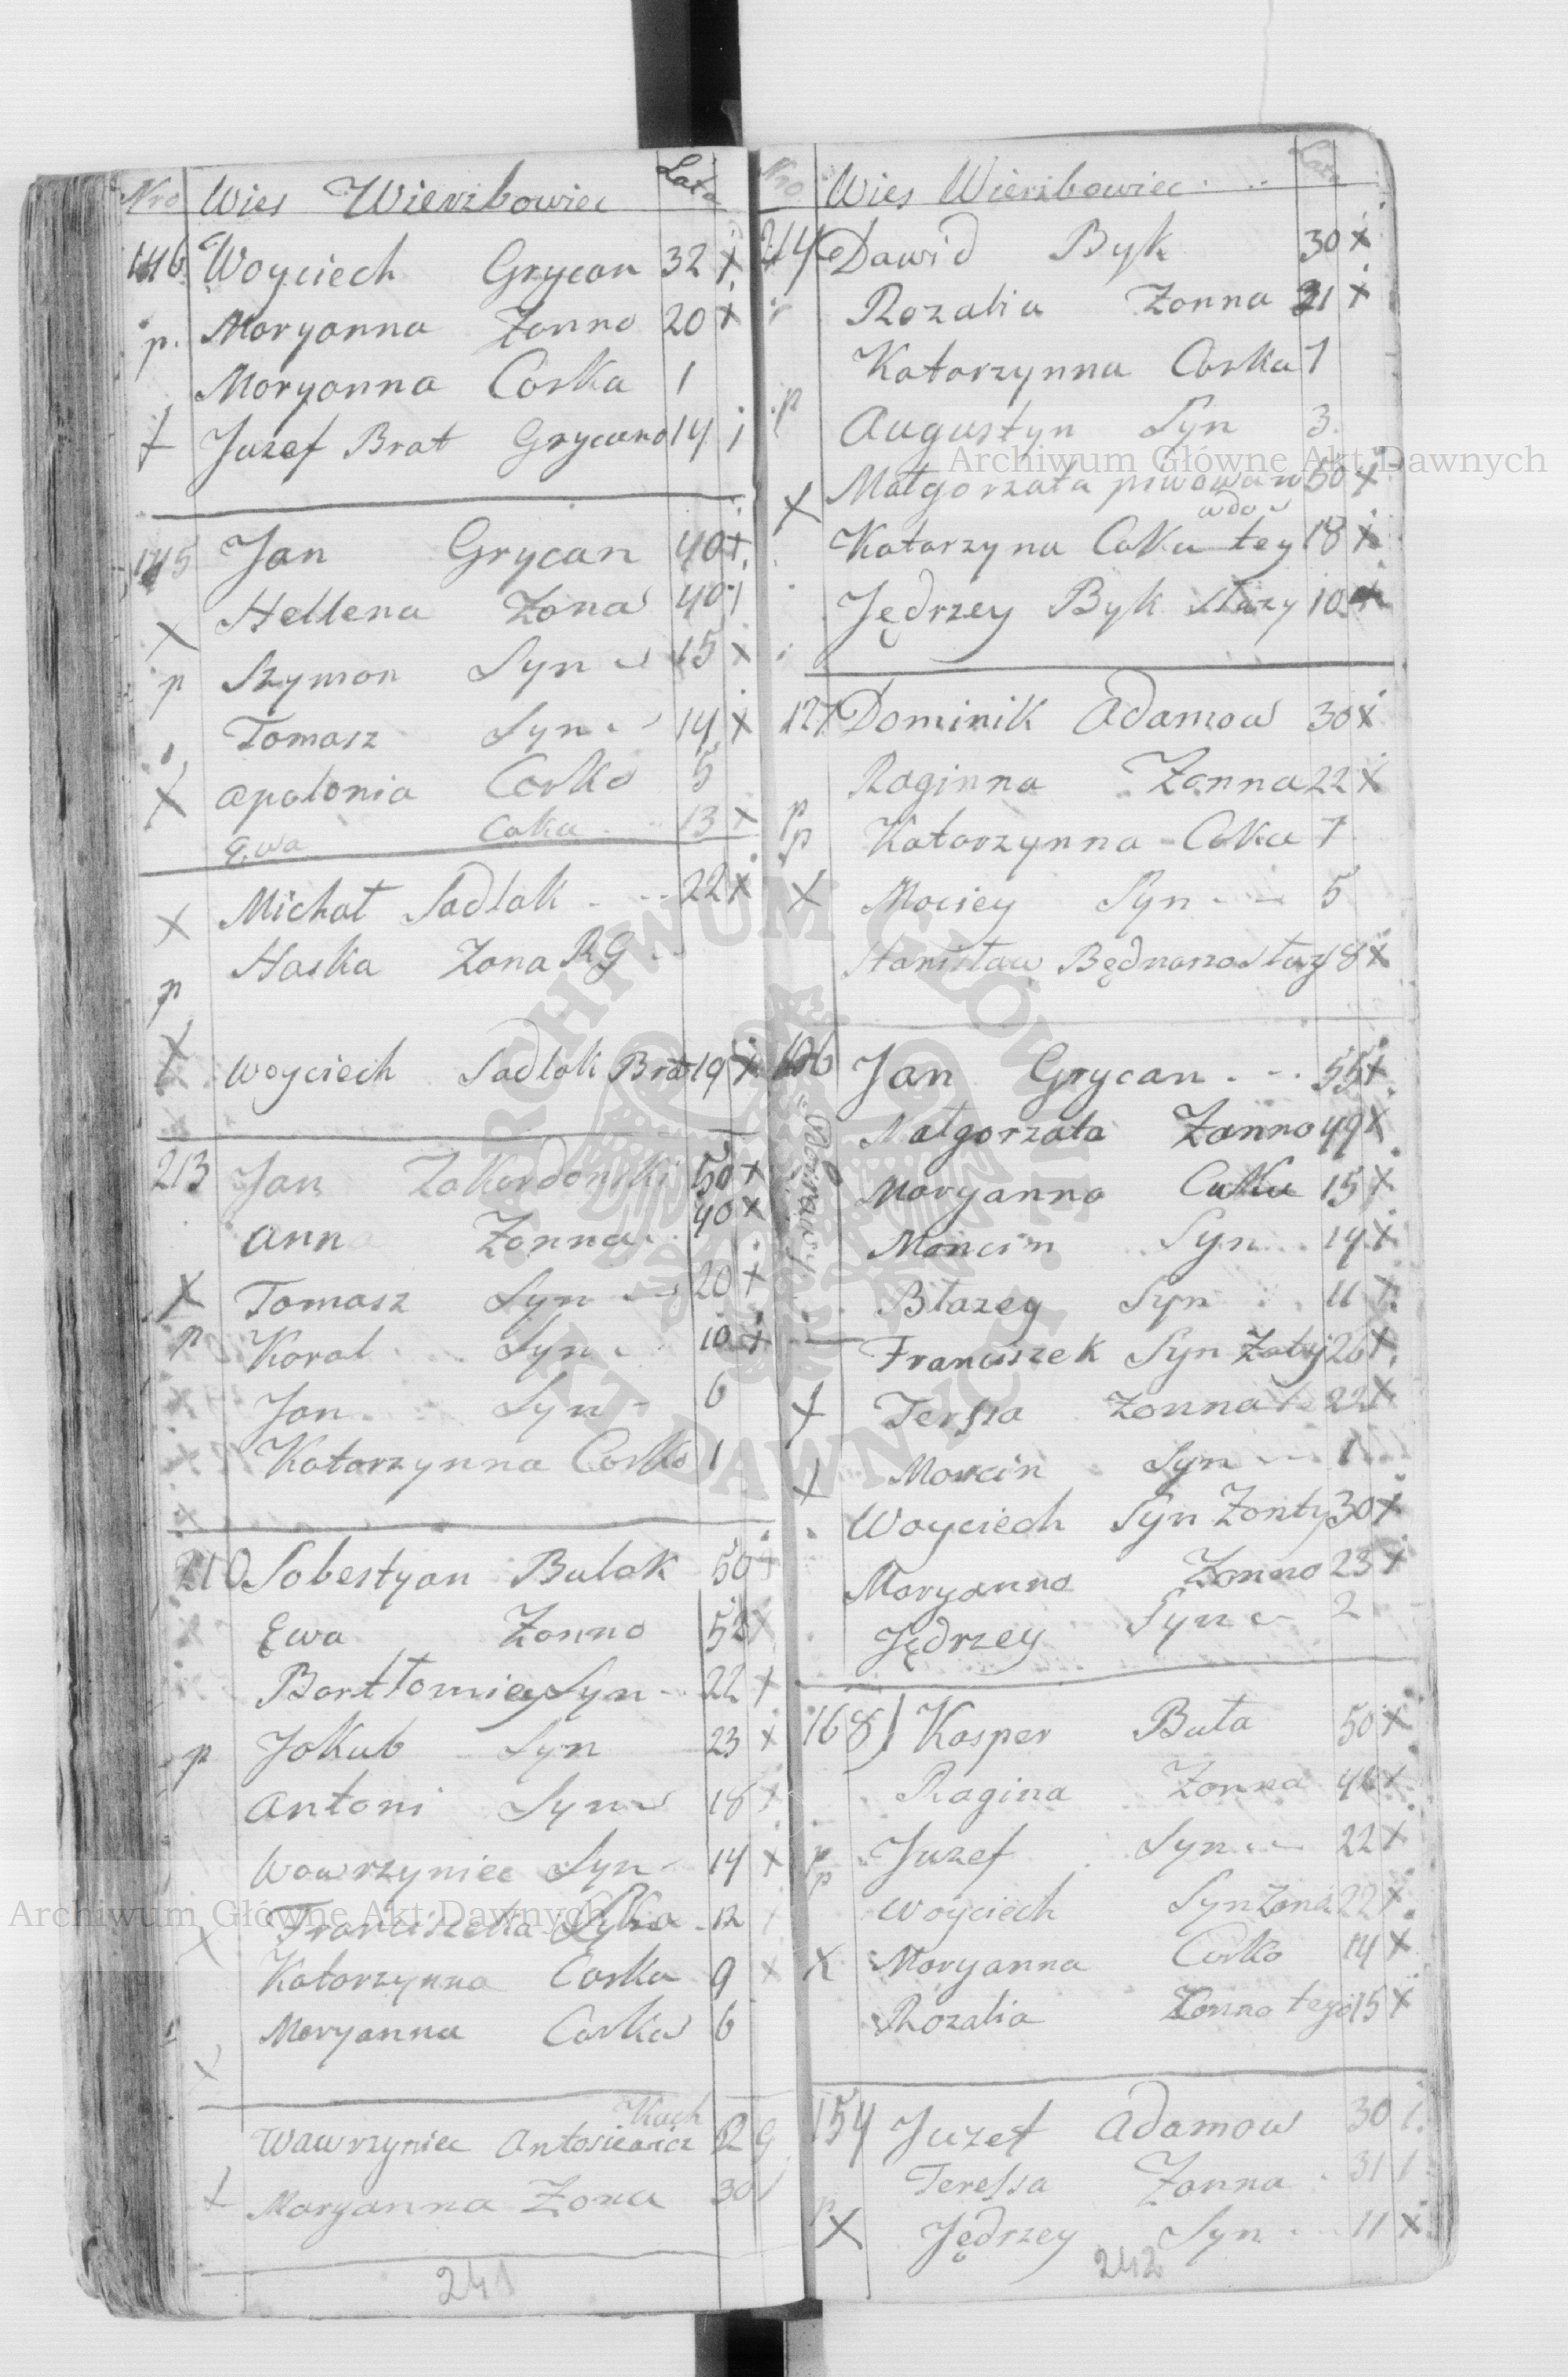 Nro Wies Wierzbowiec Lata
146 Woyciech Grycan 32 x
p. Moryanna Zonna 20 x
Moryanna Corka 1
Juzef Brat Grycana 14
145 Jan Grycan 40 x
x Hellena Zona 40
p Szymon Syn 15 x
Tomasz Syn 14 x
x Apolonia Corka 5
Ewa Coka 13 x
x Michał Sadlak 22 x
p Haska Zona RG
x Woyciech Sadlak Brat 19 x
213 Jan Zakordonski 50 x
Anna Zonna 40 x
x Tomasz Syn 20 x
p Karol Syn 10 x
Jan Syn 6
Katarzynna Corka 1
210 Sobestyan Bulak 50
Ewa Zonna
Bartłomiey Syn 22 x
p Jakub Syn 23 x
Antoni Syn 18 x
Wawrzyniec Syn 14 x
Franciszka 12
Katarzynna Corka 9 x
Moryanna Corka 6
Kuch
Wawrzyniec Antosiewicz R G
Moryanna Zona 30
241
Nro Wies Wierzbowiec Lata
214 Dawid Byk 30 x
Rozalia Zonna 21 x
Katarzynna Corka 7
p Augustyn Syn 3
Małgorzata piwowar 50 x
wdo
x Katarzyna Coka tey 18 x
Jędrzey Byk służy 10 x
127 Dominik Adamow 30 x
Raginna Zonna 22 x
p
p Katarzynna Coka 7
x Maciey Syn 5
Stanisław Bednarz służy 18 x
Jan Grycan 55 x
Małgorzata Zonna 49 x
Moryanna Coka 15 x
Marcin Syn 14 x
Błazey Syn 11 x
Franciszek Syn 26 x
x Teressa Zonna 22 x
x Marcin Syn 1
Woyciech Syn Zonty 30 x
Moryanna Zonna 23 x
Jędrzey Syn 2
168) Kasper Buta 50 x
Ragina Zonna x
p Juzef Syn 22 x
p Woyciech Syn 22 x
x Moryanna Corka 14 x
Rozalia Zonna tego 15 x
154 Juzef Adamow 30
Teressa Zonna 31
p
x Jędrzey Syn 11 x
242
Archiwum Główne Akt Dawnych
Archiwum Główne Akt Dawnych
ARCHIWUM GŁÓWNE AKT DAWNYCH